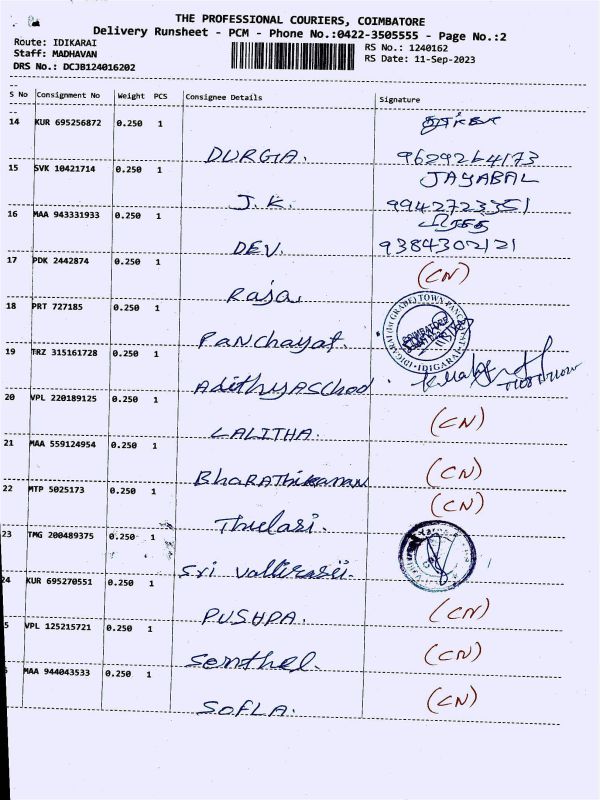 THE PROFESSIONAL COURIERS, COIMBATORE
Delivery Runsheet - PCM - Phone No.:0422-3505555 - Page No.:2
Route: IDIKARAI
Staff: MADHAVAN
DRS No.: DCJB124016202
RS No.: 1240162
RS Date: 11-Sep-2023
S No Consignment No Weight PCS Consignee Details Signature
14 KUR 695256872 0.250 1
DURGA. 9629264173
15 SVK 10421714 0.250 1 JAYABAL
J.K. 9942723351
16 MAA 943331933 0.250 1
DEV. 9384302121
17 PDK 2442874 0.250 1 (CN)
Raja
18 PRT 727185 0.250 1
Panchayat.
19 TRZ 315161728 0.250 1
20 VPL 220189125 0.250 1 (CN)
LALITHA.
21 MAA 559124954 0.250 1 (CN)
Bharathikannan
22 MTP 5025173 0.250 1 (CN)
Thulasi.
23 TMG 200489375 0.250 1
Sri
24 KUR 695270551 0.250 1 (CN)
PUSHPA.
5 VPL 125215721 0.250 1 (CN)
Senthel.
MAA 944043533 0.250 1 (CN)
SOFLA.